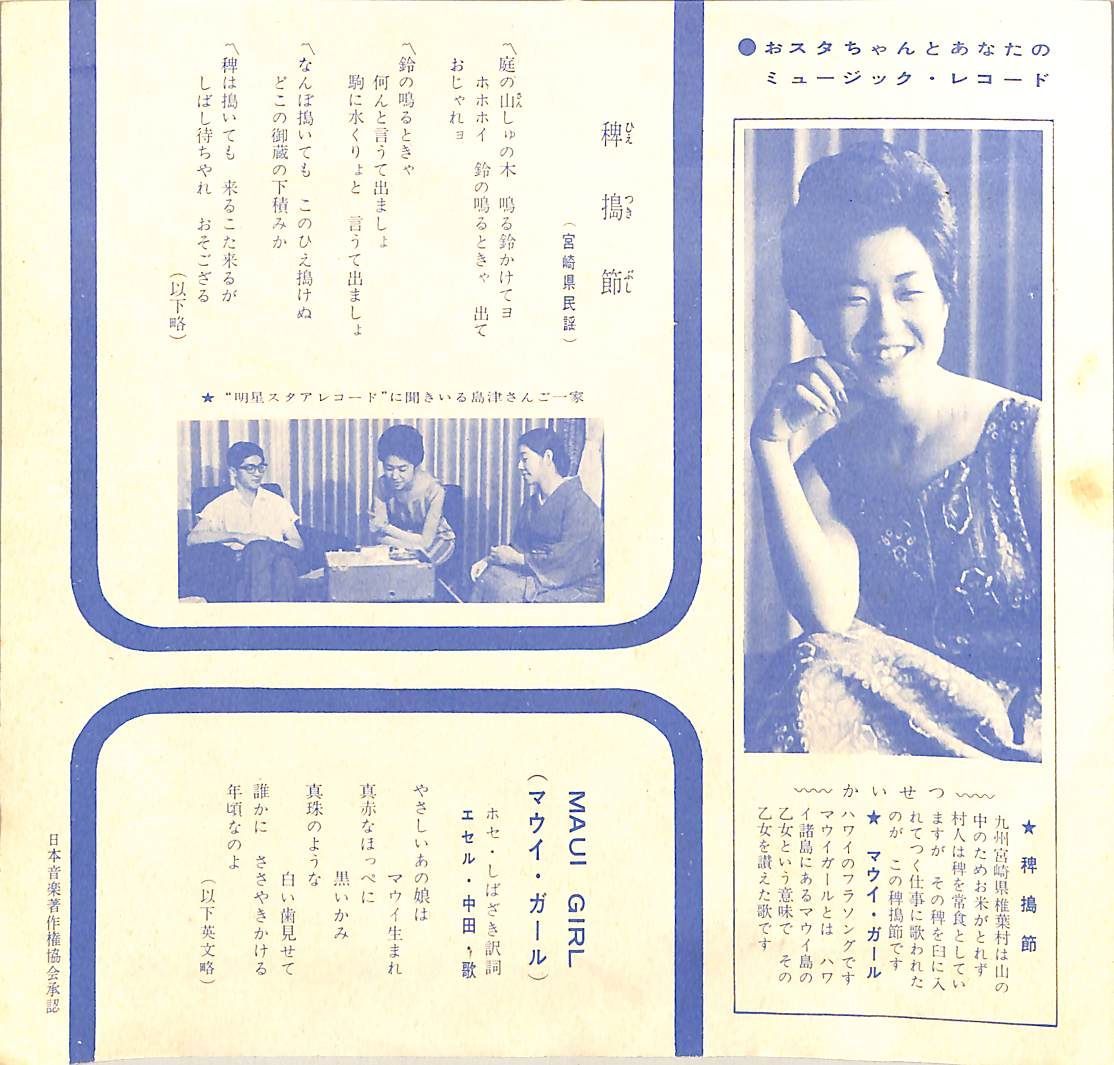 ●おスタちゃんとあなたの
ミュージック・レコード
かいせつ
★ 稗搗節
九州宮崎県椎葉村は山の
中のためお米がとれず
村人は稗を常食としてい
ますが その稗を臼に入
れてつく仕事に歌われた
のが この稗搗節です
★ マウイ・ガール
ハワイのフラソングです
マウイガールとは ハワ
イ諸島にあるマウイ島の
乙女という意味で その
乙女を讃えた歌です
稗搗節
ひえつきぶし
（宮崎県民謡）
〽庭の山しゅの木 鳴る鈴かけてヨ
さん
ホホホイ 鈴の鳴るときゃ 出て
おじゃれョ
〽鈴の鳴るときゃ
何んと言うて出ましょ
駒に水くりょと 言うて出ましょ
〽なんぼ搗いても このひえ搗けぬ
どこの御蔵の下積みか
〽稗は搗いても 来るこた来るが
しばし待ちやれ おそござる
（以下略）
★ “明星スタアレコード”に聞きいる島津さんご一家
MAUI GIRL
（マウイ・ガール）
ホセ・しばざき訳詞
エセル・中田・歌
やさしいあの娘は
マウイ生まれ
真赤なほっぺに
黒いかみ
真珠のような
白い歯見せて
誰かに ささやきかける
年頃なのよ
（以下英文略）
日本音楽著作権協会承認